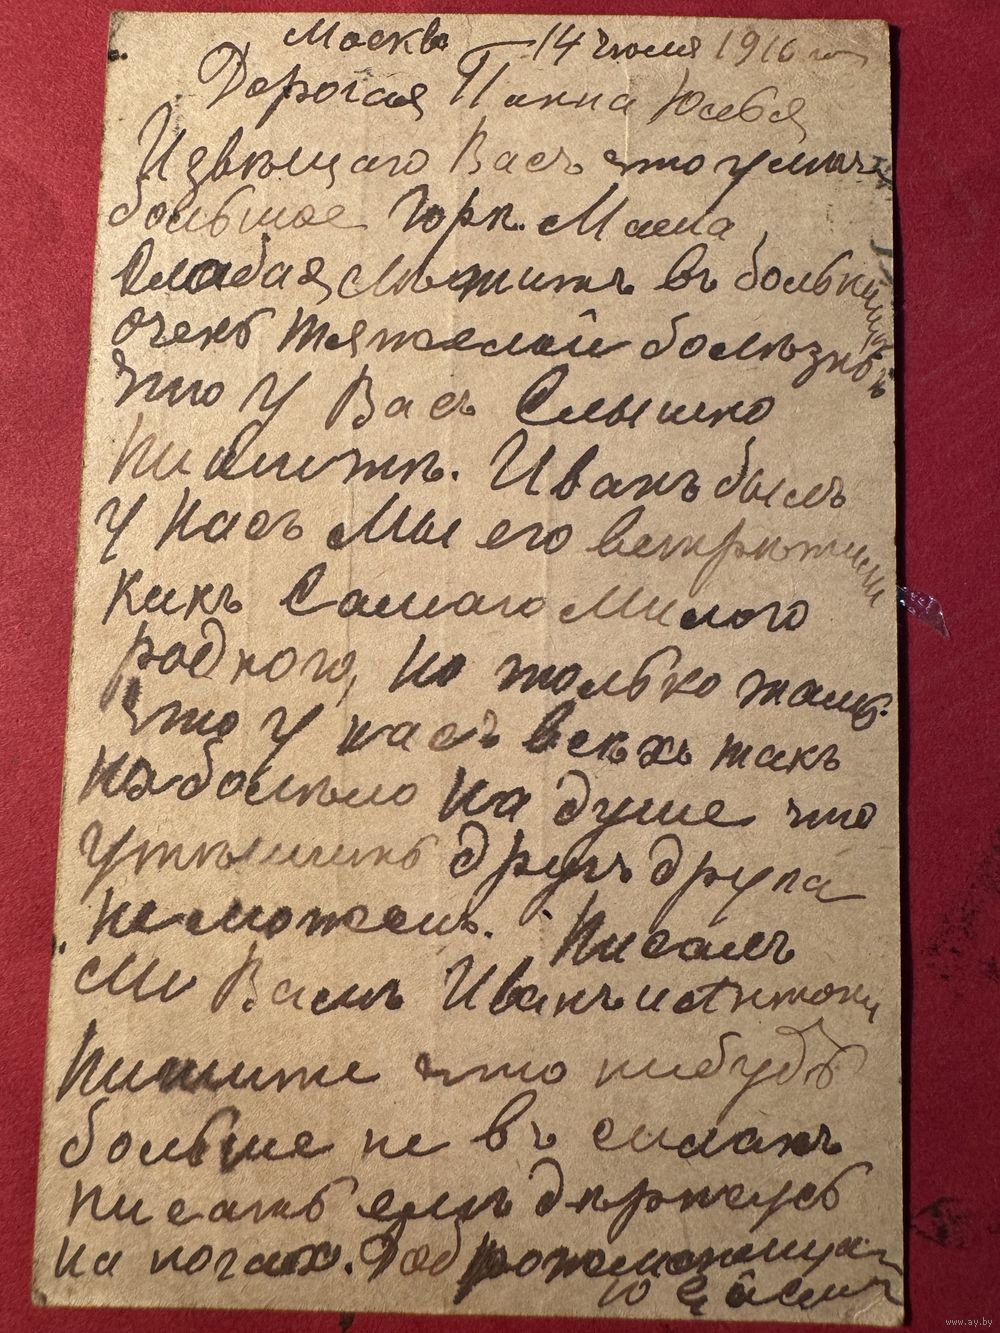 Москва 14 июля 1916 го
Дорогая Панна Юлья
Извѣщаю Васъ что у меня
большое горе. Маша
Слабая лѣжитъ въ больницѣ
очень тяжелой болѣзнь
что у Васъ Слышно
пишите. Иванъ былъ
у насъ Мы его встрѣтили
какъ Самаго Милого
родного, но только жаль
что у насъ всѣхъ такъ
наболѣло на душе что
утѣшить другъ друга
не можемъ. Писалъ
ли Вамъ Иванъ и Антонъ
пишите что нибудь
больше не въ силахъ
писать еле держусь
на ногахъ. Доброжелающая
Ю
www.ay.by